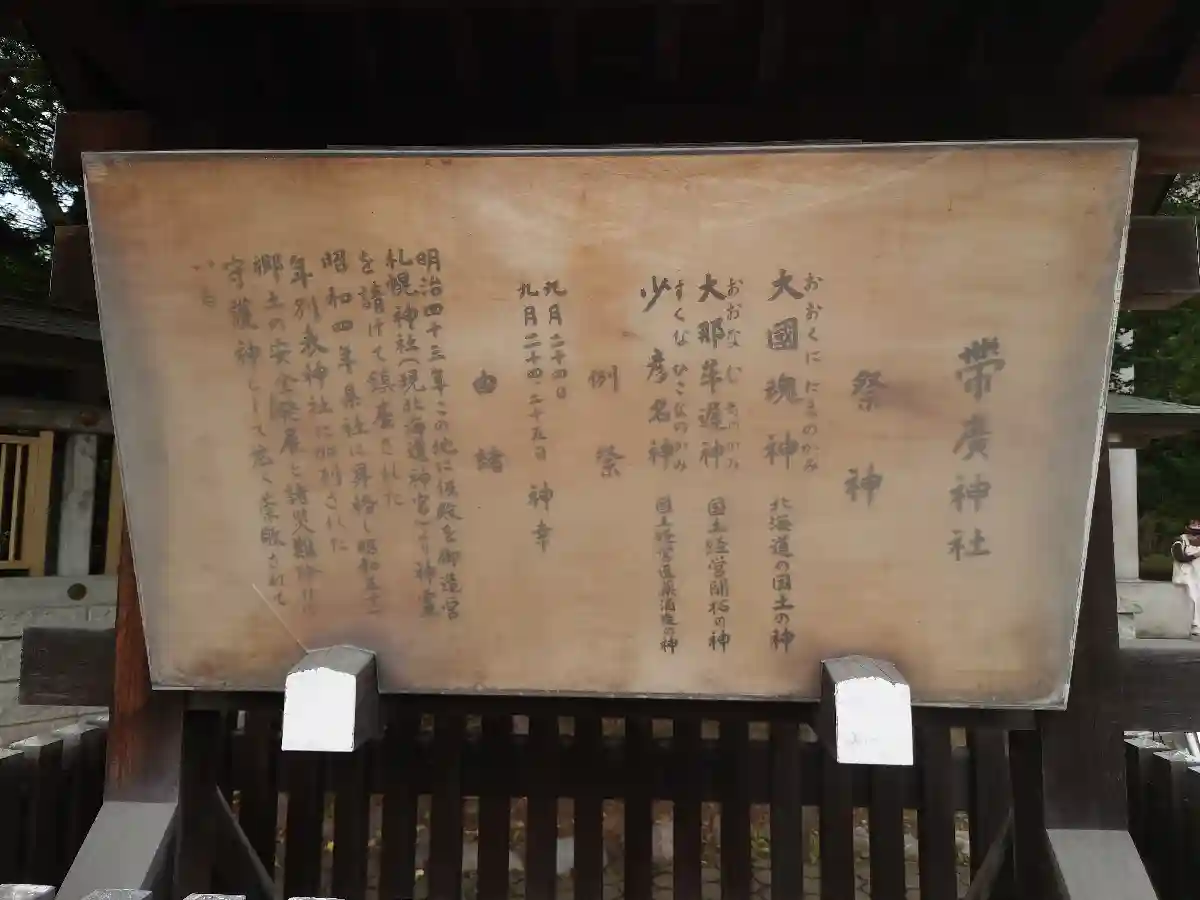 帶廣神社
祭神
おおくにたまのかみ
大國魂神 北海道の国土の神
おおなむちのかみ
大那牟遅神 国土経営開拓の神
すくなひこなのかみ
少彦名神 国土経営医薬酒造の神
例祭
九月二十四日
九月二十四、二十五日 神幸
由緒
明治四十三年この地に仮殿を御造営
札幌神社(現北海道神宮)より神霊
を請けて鎮座された
昭和四年県社に昇格し昭和
年別表神社に加列された
郷土の安全発展と諸災難除けの
守護神として志く崇敬されて
いる